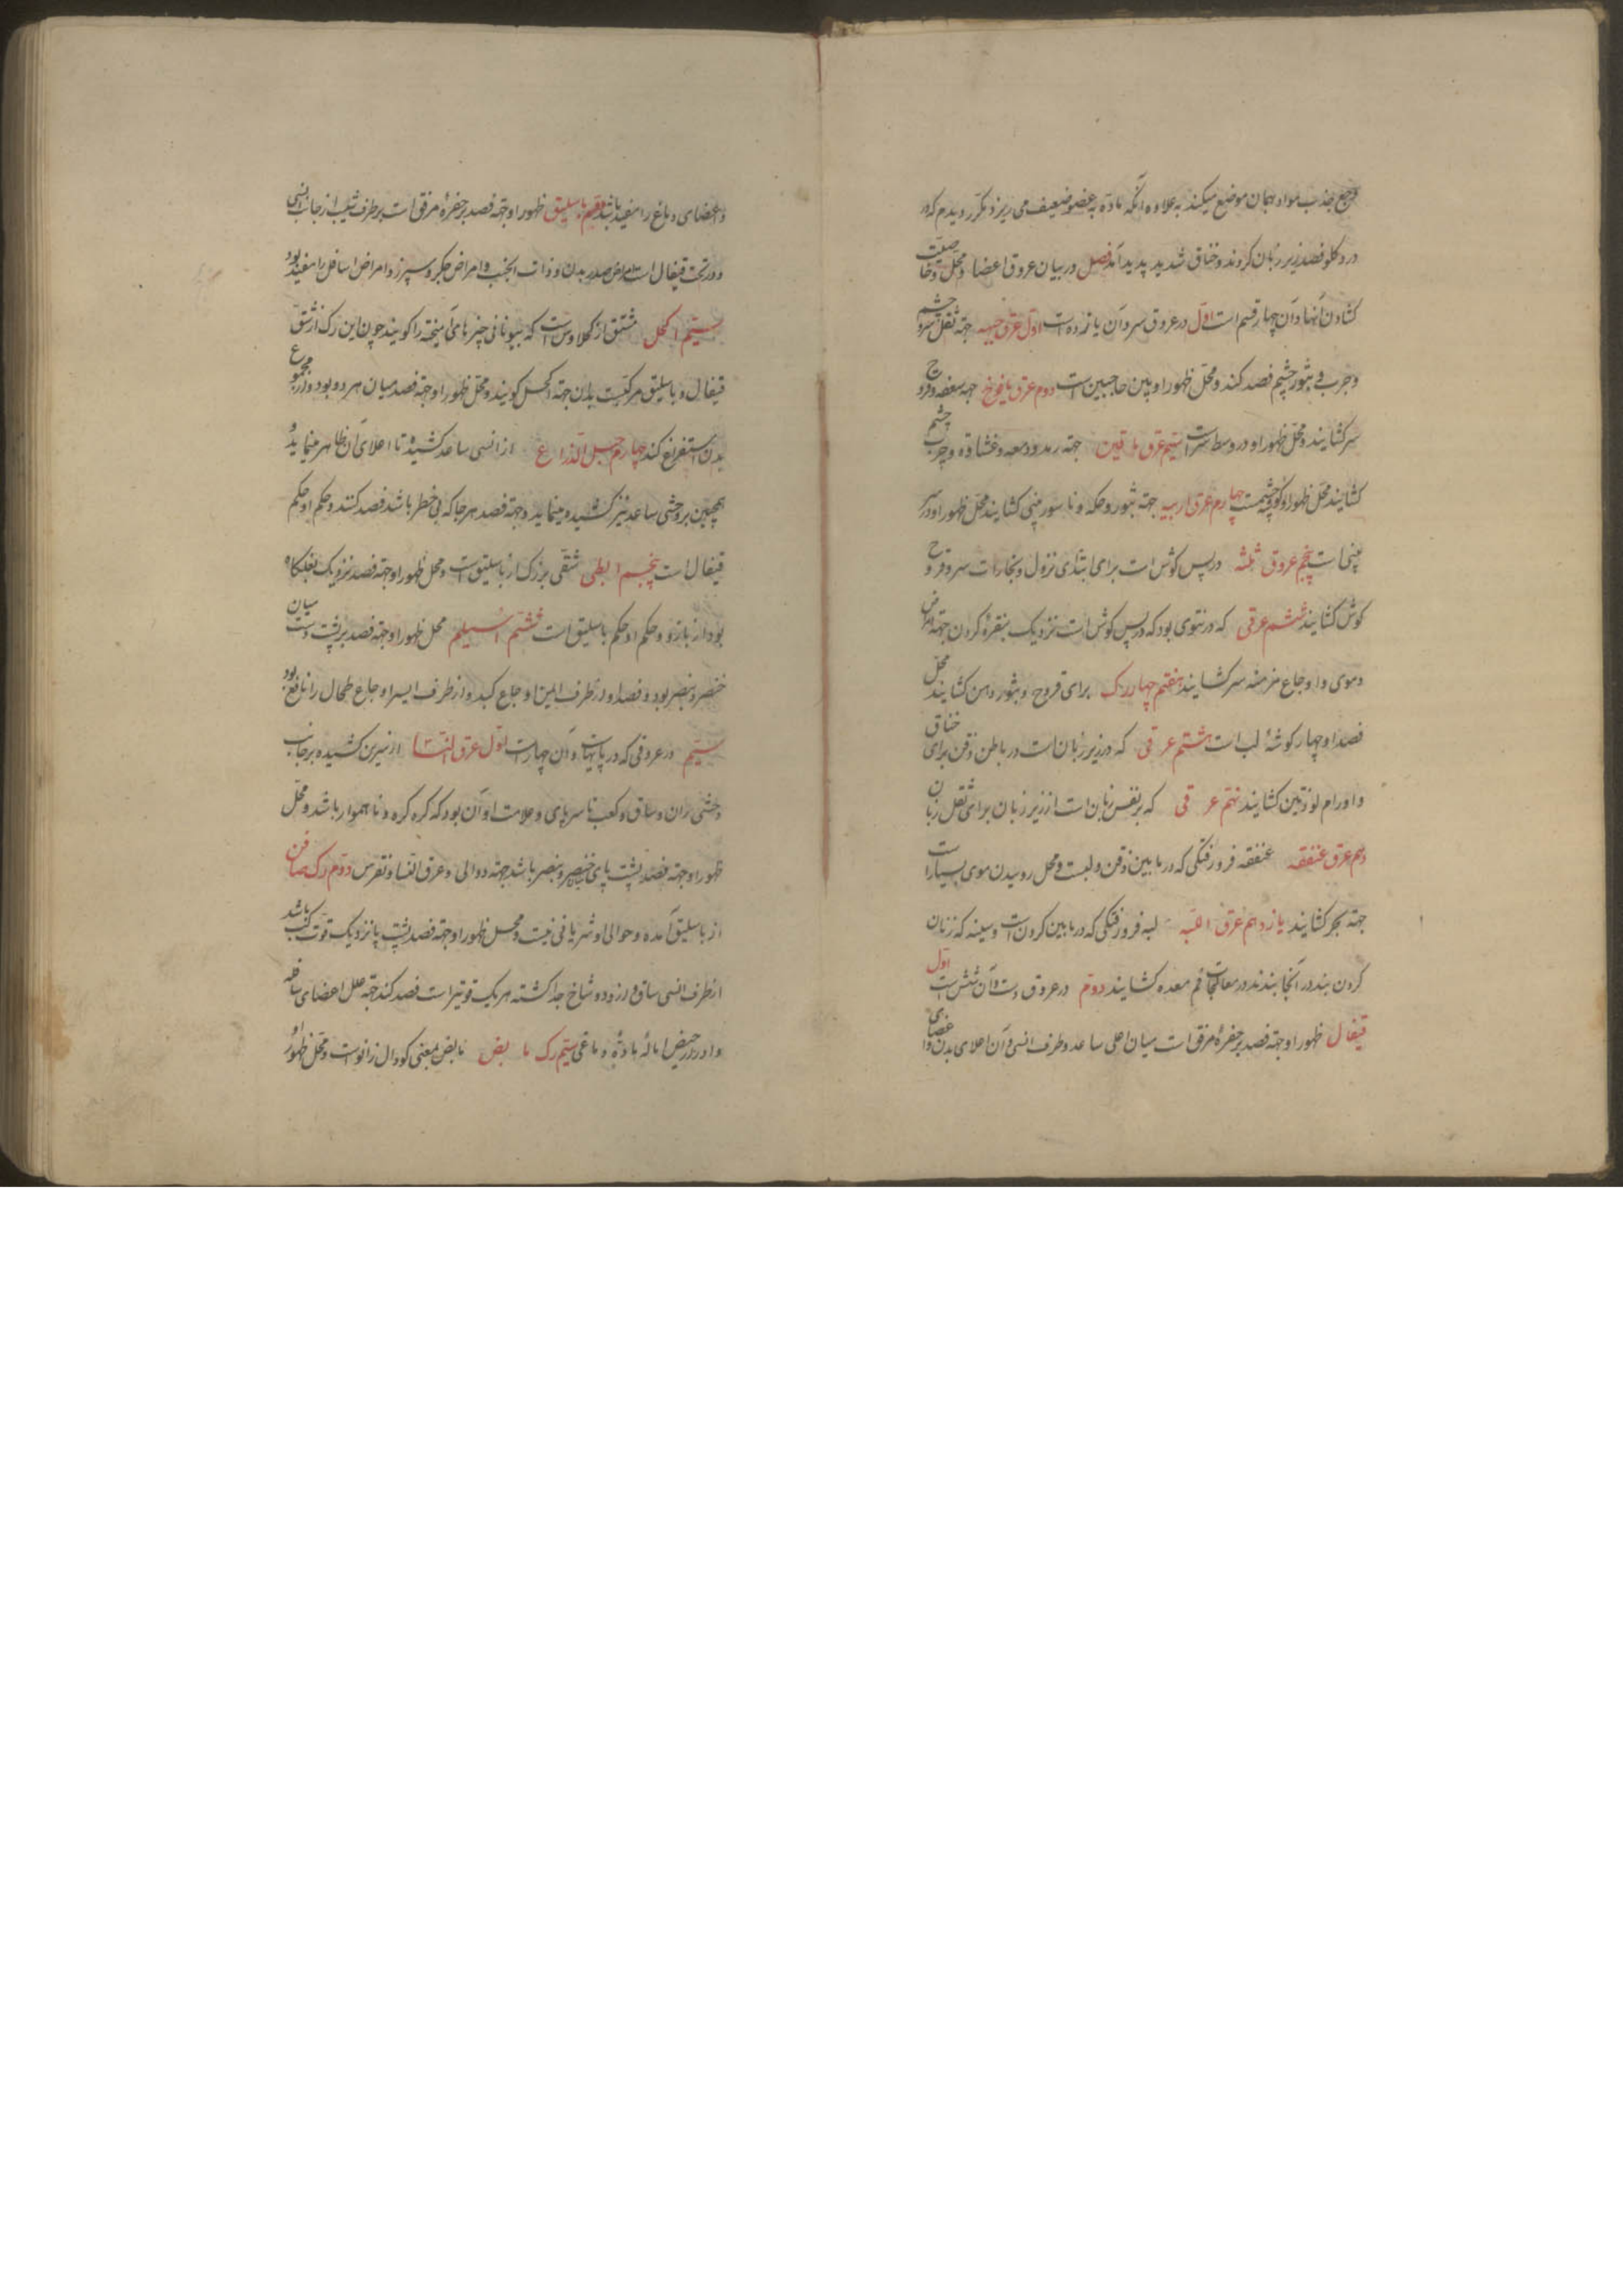 وجع جذب مواد بهمان موضع میکند به علاوه آنکه ماده به عضو ضعیف می ریزد مکرر دیدم که در
درد کلو فصد زیر زبان کردند و خناق شدید پدید آمد فصل در بیان عروق اعضا و محل و خاصیت
کشادن آنها و آن چهار قسم است اول در عروق سر و آن یازده است اول عرق جبهه جهة ثقل سر و چشم
و جرب و بثور چشم فصد کنند و محل ظهور او بین حاجبین است دوم عرق یافوخ جهة سعفه و قروح
سر کشایند و محل ظهور او در وسط سر است سیم عرق ماقین جهة رمد و دمعه و غشاوه و جرب چشم
کشایند محل ظهور او کوشه چشمست چهارم عرق ارنبه جهة بثور و حکه و ناسور بینی کشایند محل ظهور او در سر
بینی است پنجم عروق ثلثه در پس کوش است برای ابتدای نزول و بخارات سر و قروح
کوش کشایند ششم عرقی که در نتوی بود که در پس کوش است نزدیک بنقره کردن جهة امراض
دموی و اوجاع مزمنه سر کشایند هفتم چهار رک برای قروح و بثور دهن کشایند محل
فصد او چهار کوشهٔ لب است هشتم عرقی که در زیر زبان است در باطن ذقن برای خناق
و اورام لوزتین کشایند نهم عرقی که بر نفس زبان است از زیر زبان برای ثقل زبان
دهم عرق عنفقه عنفقه فرورفتکی که در مابین ذقن و لبست و محل روییدن موی بسیار است
جهة بخر کشایند یازدهم عرق اللبه لبه فرورفتکی که در مابین کردن است و سینه که زنان
کردن بند در آنجا بندند در معالجات فم معده کشایند دوم در عروق دست و آن شش است اول
قیفال ظهور او جهة فصد بر حفرهٔ مرفق است میان اعلی ساعد و طرف انسی و آن اعلای بدن و اعضای
و اعضای دماغ را مفید باشد دویم باسلیق ظهور او جهة فصد بر حفرهٔ مرفق است بر طرف شیب از جانب انسی
و در تحت قیفال است امراض صدر بدن و ذات الجنب و امراض جکر و سپرز و امراض اسافل را مفید بود
سیم اکحل مشتق از کلاوس است که بیونانی چیزهای آمیخته را کویند چون این رک از شق
قیفال و باسلیق مرکبست بدن جهة اکحل کویند و محل ظهور او جهة فصد میان هر دو بود و از مجموع
بدن استفراغ کند چهارم حبل الذراع از انسی ساعد کشیده تا اعلای آن ظاهر مینماید و
همچنین بر وحشی ساعد نیز کشیده مینماید و جهة فصد هر جا که بی خطر باشد فصد کنند و حکم او حکم
قیفال است پنجم ابطی شقی بزرک از باسلیق است و محل ظهور او جهة فصد نزدیک بغلکاه
بود از بازو و حکم او حکم باسلیق است ششم اسیلم محل ظهور او جهة فصد بر پشت دست میان
خنصر و بنصر بود و فصد او از طرف ایمن اوجاع کبد و از طرف ایسر اوجاع طحال را نافع بود
سیم در عروقی که در پایهاست و آن چهار است اول عرق النسا از سرین کشیده بر جانب
وحشی ران و ساق و کعب تا سر پای و علامت او آن بود که کره کره و ناهموار باشد و محل
ظهور او جهة فصد پشت پای خنصر و بنصر باشد جهة دوالی و عرق النسا و نقرس دوم رک صافن
از باسلیق آمده و حوالی او شریانی نیست و محل ظهور او جهة فصد پشت پا نزدیک قوت کعب باشد
از طرف انسی ساق و از و دو شاخ جدا کشته هر یک قویتر است فصد کند جهة علل اعضای سافله
و ادرار حیض امالهٔ مادهٔ دماغی سیم رک مابض مابض بمعنی کودال زانوست و محل ظهور او